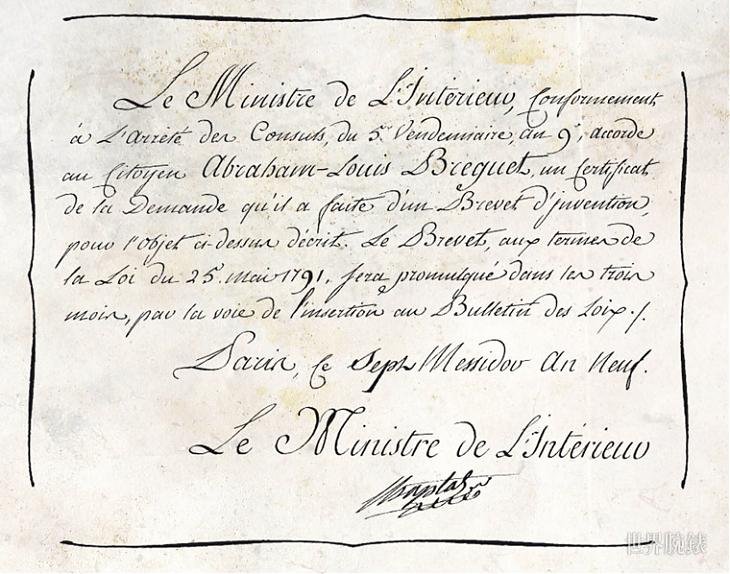 Le Ministre de L'Intérieur, Conformément
à L'Arrêté des Consuls, du 5.e Vendemiaire, an 9.e, accorde
au Citoyen Abraham-Louis Breguet, un Certificat
de la Demande qu'il a faite d'un Brevet d'Invention,
pour l'Objet ci-dessus décrit. Le Brevet, aux termes de
la Loi du 25. mai 1791. sera promulgué dans les trois
mois, par la voie de l'insertion au Bulletin des Loix./.
Paris, Ce Sept Messidor An Neuf.
Le Ministre de L'Intérieur
Chaptal
世界腕錶